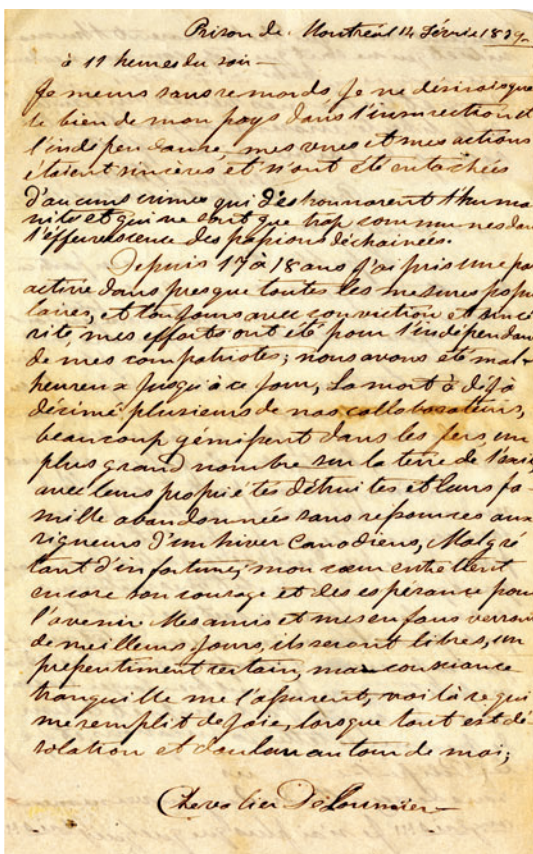 Prison de Montréal 14 Février 1839
à 11 heures du soir—
Je meurs sans remords Je ne désirais que
le bien de mon pays dans l'insurrection et
l'indépendance, mes vues et mes actions
étaient sincères et n'ont été entachées
d'aucuns crimes qui déshonnorent l'huma
nité et qui ne sont que trop communes dans
l'effervescence des passions déchainées.
Depuis 17 à 18 ans j'ai pris une pa
active dans presque toutes les mesures popu
laires, et toujours avec conviction et sincé
rité, mes efforts ont été pour l'indépendan
de mes compatriotes; nous avons été mal-
heureux jusqu'à ce jour, La mort à déjà
décimé plusieurs de nos collaborateurs,
beaucoup gémissent dans les fers, un
plus grand nombre sur la terre de l'exil,
avec leurs propriétés détruites et leurs fa-
mille abandonnées sans ressources aux
rigueurs d'un hiver Canadiens, Malgré
tant d'infortune, mon cœur entretient
encore son courage et des espérance pour
l'avenir Mes amis et mes enfans verront
de meilleurs jours, ils seront libres, un
pressentiment certain, ma consciance
tranquille me l'assurent, voilà ce qui
me remplit de joie, lorsque tout est dé-
solation et douleur autour de moi;
Chevalier De Lorimier—